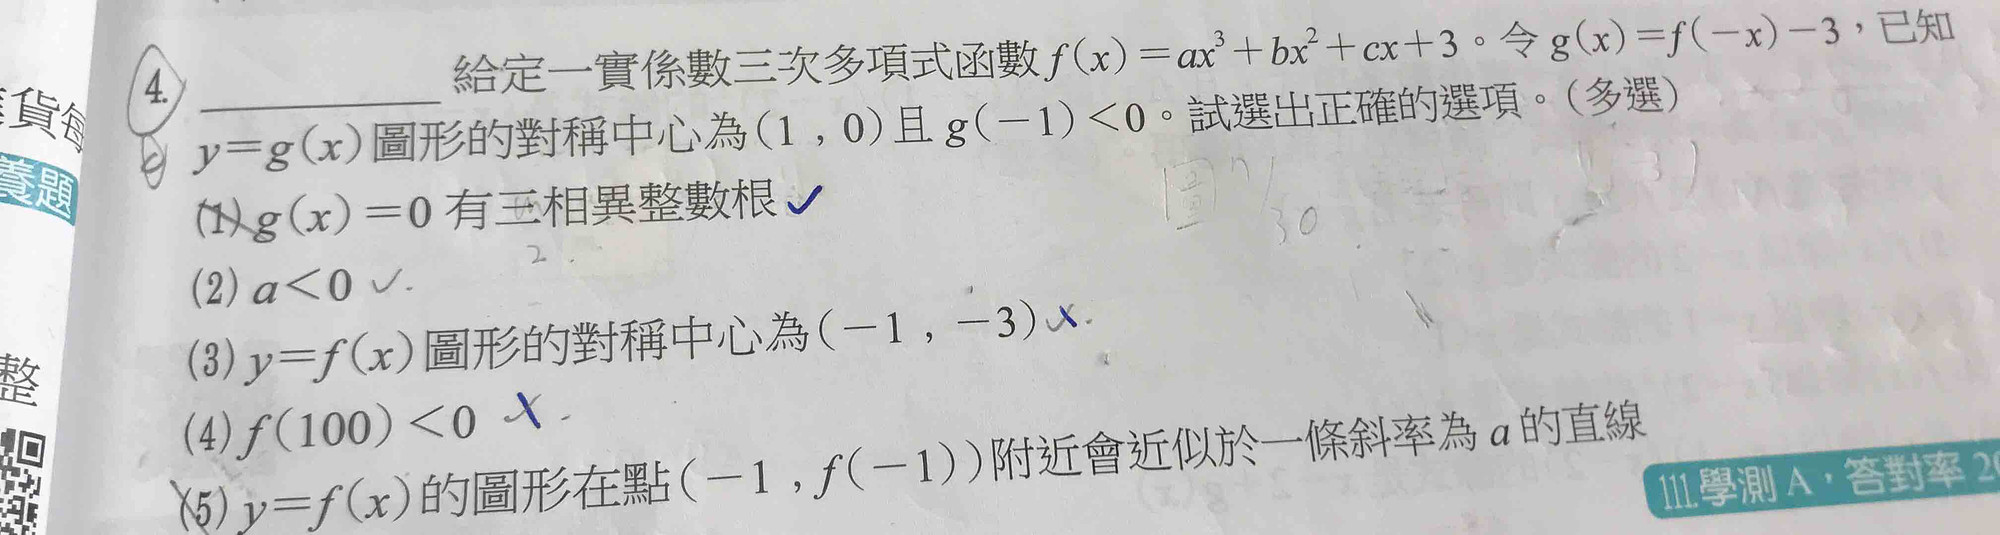 貨每
養題
整
4. 給定一實係數三次多項式函數 f(x)=ax³+bx²+cx+3。令 g(x)=f(−x)−3,已知
y=g(x)圖形的對稱中心為(1,0)且 g(−1)<0。試選出正確的選項。(多選)
(1) g(x)=0 有三相異整數根 ✓
2
(2) a<0 ✓
(3) y=f(x)圖形的對稱中心為(−1,−3) ×
(4) f(100)<0 ×
(5) y=f(x)的圖形在點(−1,f(−1))附近會近似於一條斜率為 a 的直線
111.學測 A,答對率 2